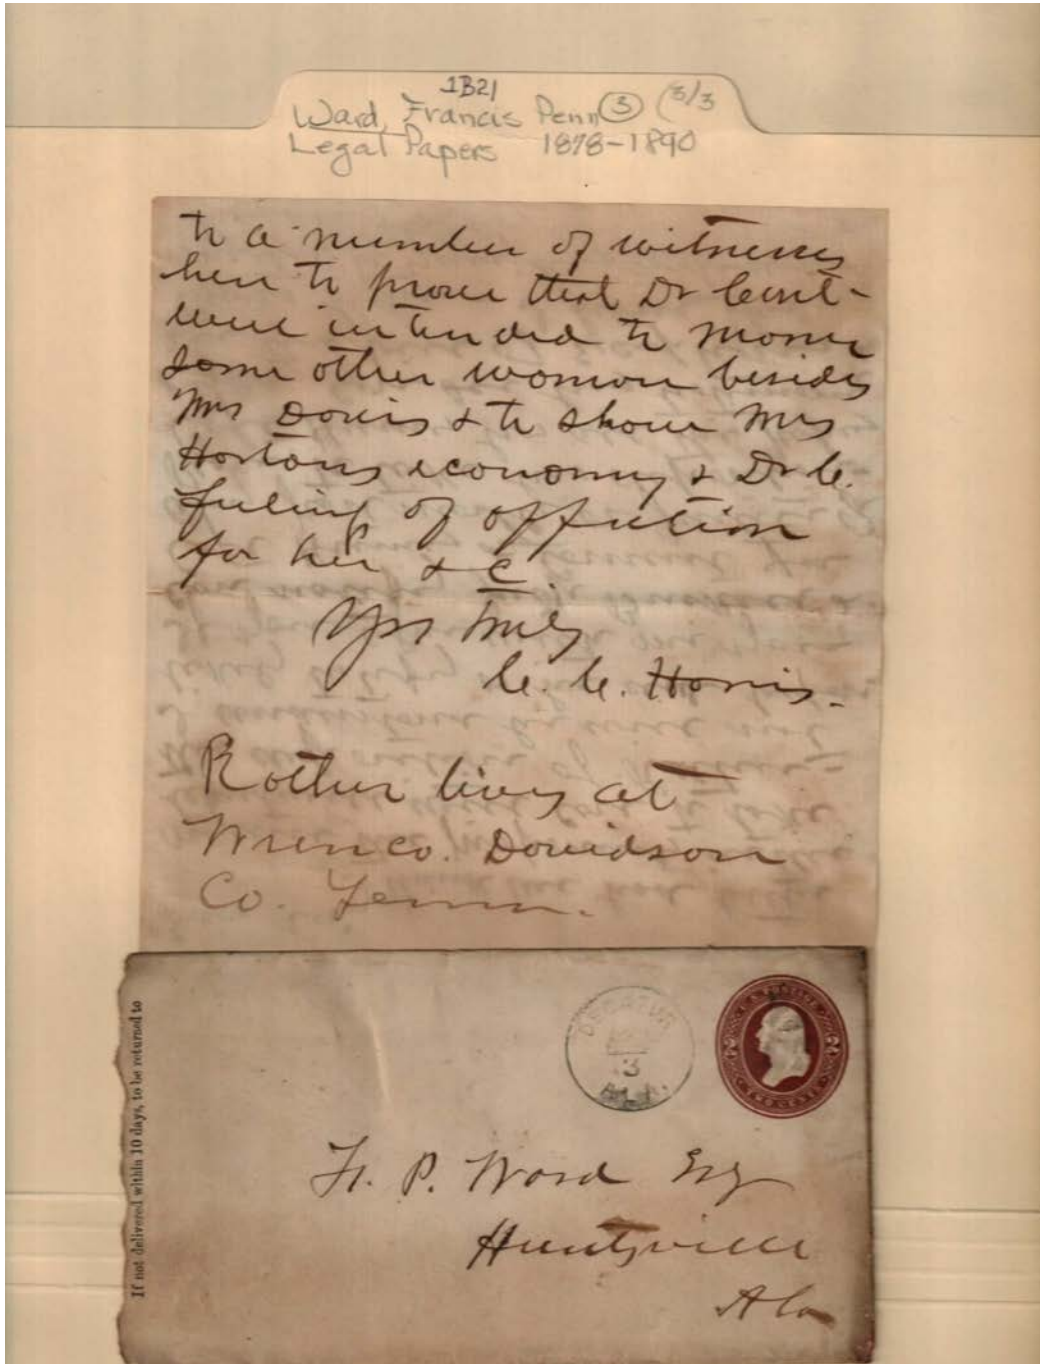 1B21
Ward, Francis Penn (3) (3/3
Legal Papers 1878-1890
to a number of witnesses
here to prove that Dr Cent-
were intended to marry
some other woman besides
Mrs Davis & to show Mrs
Hortons economy & Dr C.
feeling of affection
for her & c.
Yrs truly
C. C. Harris.
Rather lives at
Wrenco. Davidson
Co. Tenn.
DECATUR
3
ALA.
U.S. POSTAGE
2 2
TWO CENTS
If not delivered within 10 days, to be returned to
F. P. Ward Esq
Huntsville
Ala